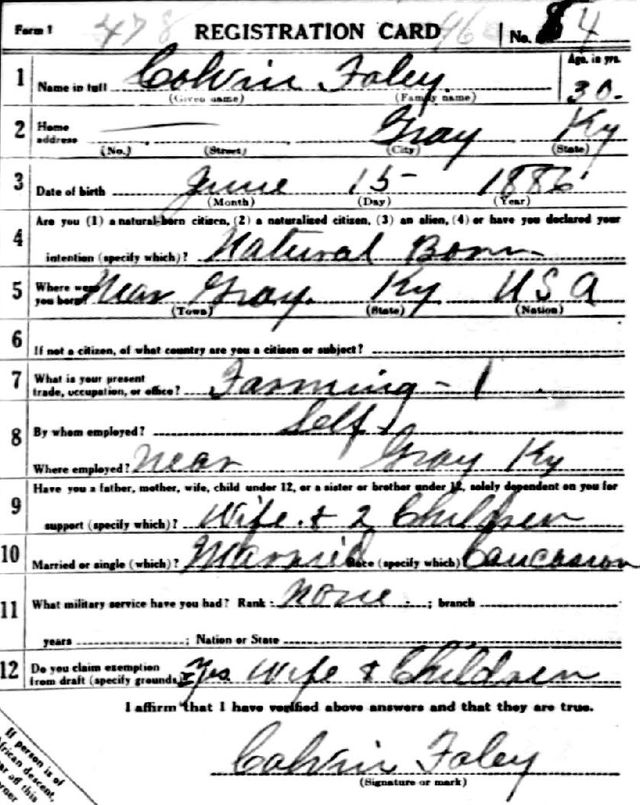 Form 1 478 REGISTRATION CARD 96 No. 84
1 Name in full Colvin Foley Age, in yrs. 30
(Given name) (Family name)
2 Home address Gray Ky
(No.) (Street) (City) (State)
3 Date of birth June 15 1886
(Month) (Day) (Year)
4 Are you (1) a natural-born citizen, (2) a naturalized citizen, (3) an alien, (4) or have you declared your
intention (specify which)? Natural Born
5 Where were you born? Near Gray Ky USA
(Town) (State) (Nation)
6 If not a citizen, of what country are you a citizen or subject?
7 What is your present trade, occupation, or office? Farming - 1
8 By whom employed? Self
Where employed? Near Gray Ky
9 Have you a father, mother, wife, child under 12, or a sister or brother under 12, solely dependent on you for
support (specify which)? Wife & 2 Children
10 Married or single (which)? Married Race (specify which) Caucasion
11 What military service have you had? Rank none ; branch
years ; Nation or State
12 Do you claim exemption from draft (specify grounds)? Yes Wife & Children
I affirm that I have verified above answers and that they are true.
Colvin Foley
(Signature or mark)
If person is of
African descent,
tear off this
corner